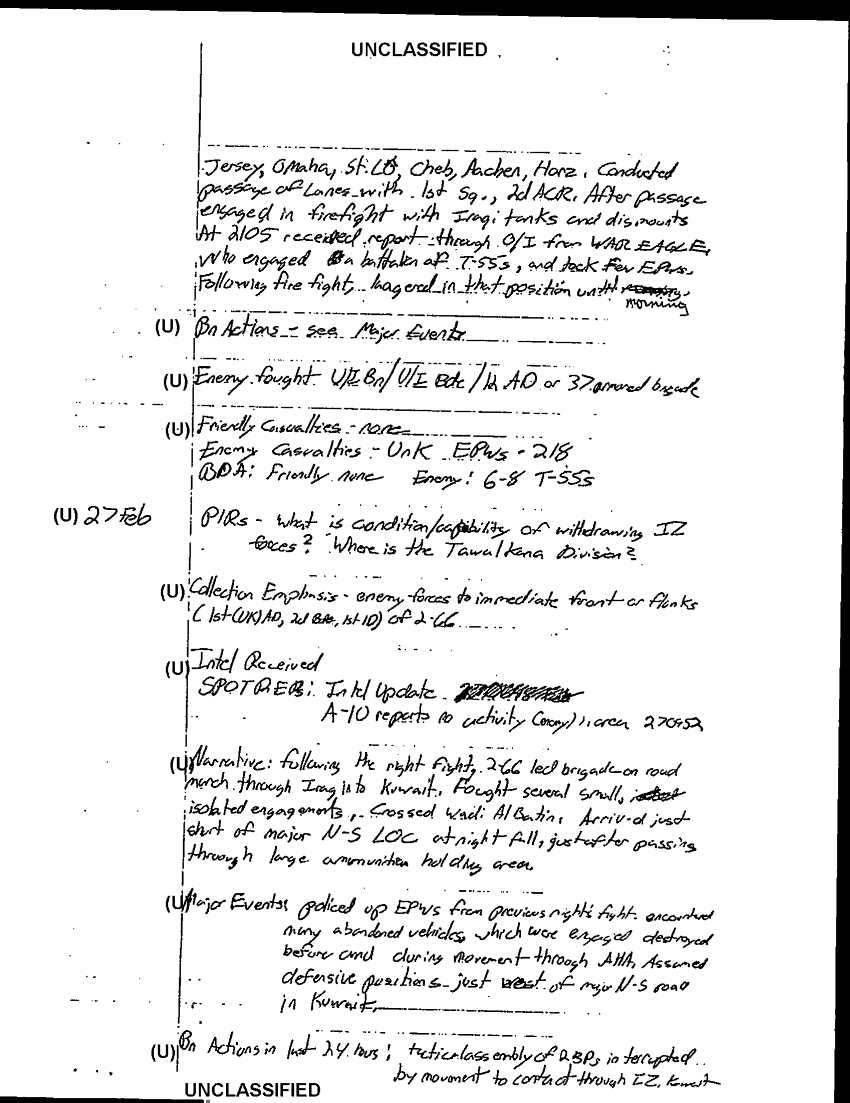 UNCLASSIFIED
Jersey, Omaha, St. Lô, Cheb, Aachen, Harz. Conducted
passage of Lanes with 1st Sq., 2d ACR. After passage
engaged in firefight with Iraqi tanks and dismounts
At 2105 received report through O/I from WAR EAGLE,
who engaged a battalion of T-55s, and took few EPWs.
Following fire fight, lagered in that position until
morning
(U) Bn Actions - see Major Events
(U) Enemy fought U/I Bn/ U/I Bde / 12 AD or 37 armored brigade
(U) Friendly Casualties - none
Enemy Casualties - Unk EPWs - 218
BDA: Friendly none Enemy: 6-8 T-55s
(U) 27 Feb PIRs - what is condition/capability of withdrawing IZ
forces? Where is the Tawalkana Division?
(U) Collection Emphasis - enemy forces to immediate front or flanks
(1st (UK) AD, 2d Bde, 1st ID) of 2-66
(U) Intel Received
SPOTREP: Intel Update
A-10 reports no activity (enemy) area 270952
(U) Narrative: following the night fight, 2-66 led brigade on road
march through Iraq into Kuwait. Fought several small,
isolated engagements, Crossed Wadi Al Batin. Arrived just
short of major N-S LOC at night fall, just after passing
through large ammunition holding area
(U) Major Events: policed up EPWs from previous night's fight. encountered
many abandoned vehicles, which were engaged destroyed
before and during movement through AHA. Assumed
defensive positions just west of major N-S road
in Kuwait.
(U) Bn Actions in last 24 hours: tactical assembly of 2 BPs interrupted
by movement to contact through IZ, Kuwait
UNCLASSIFIED